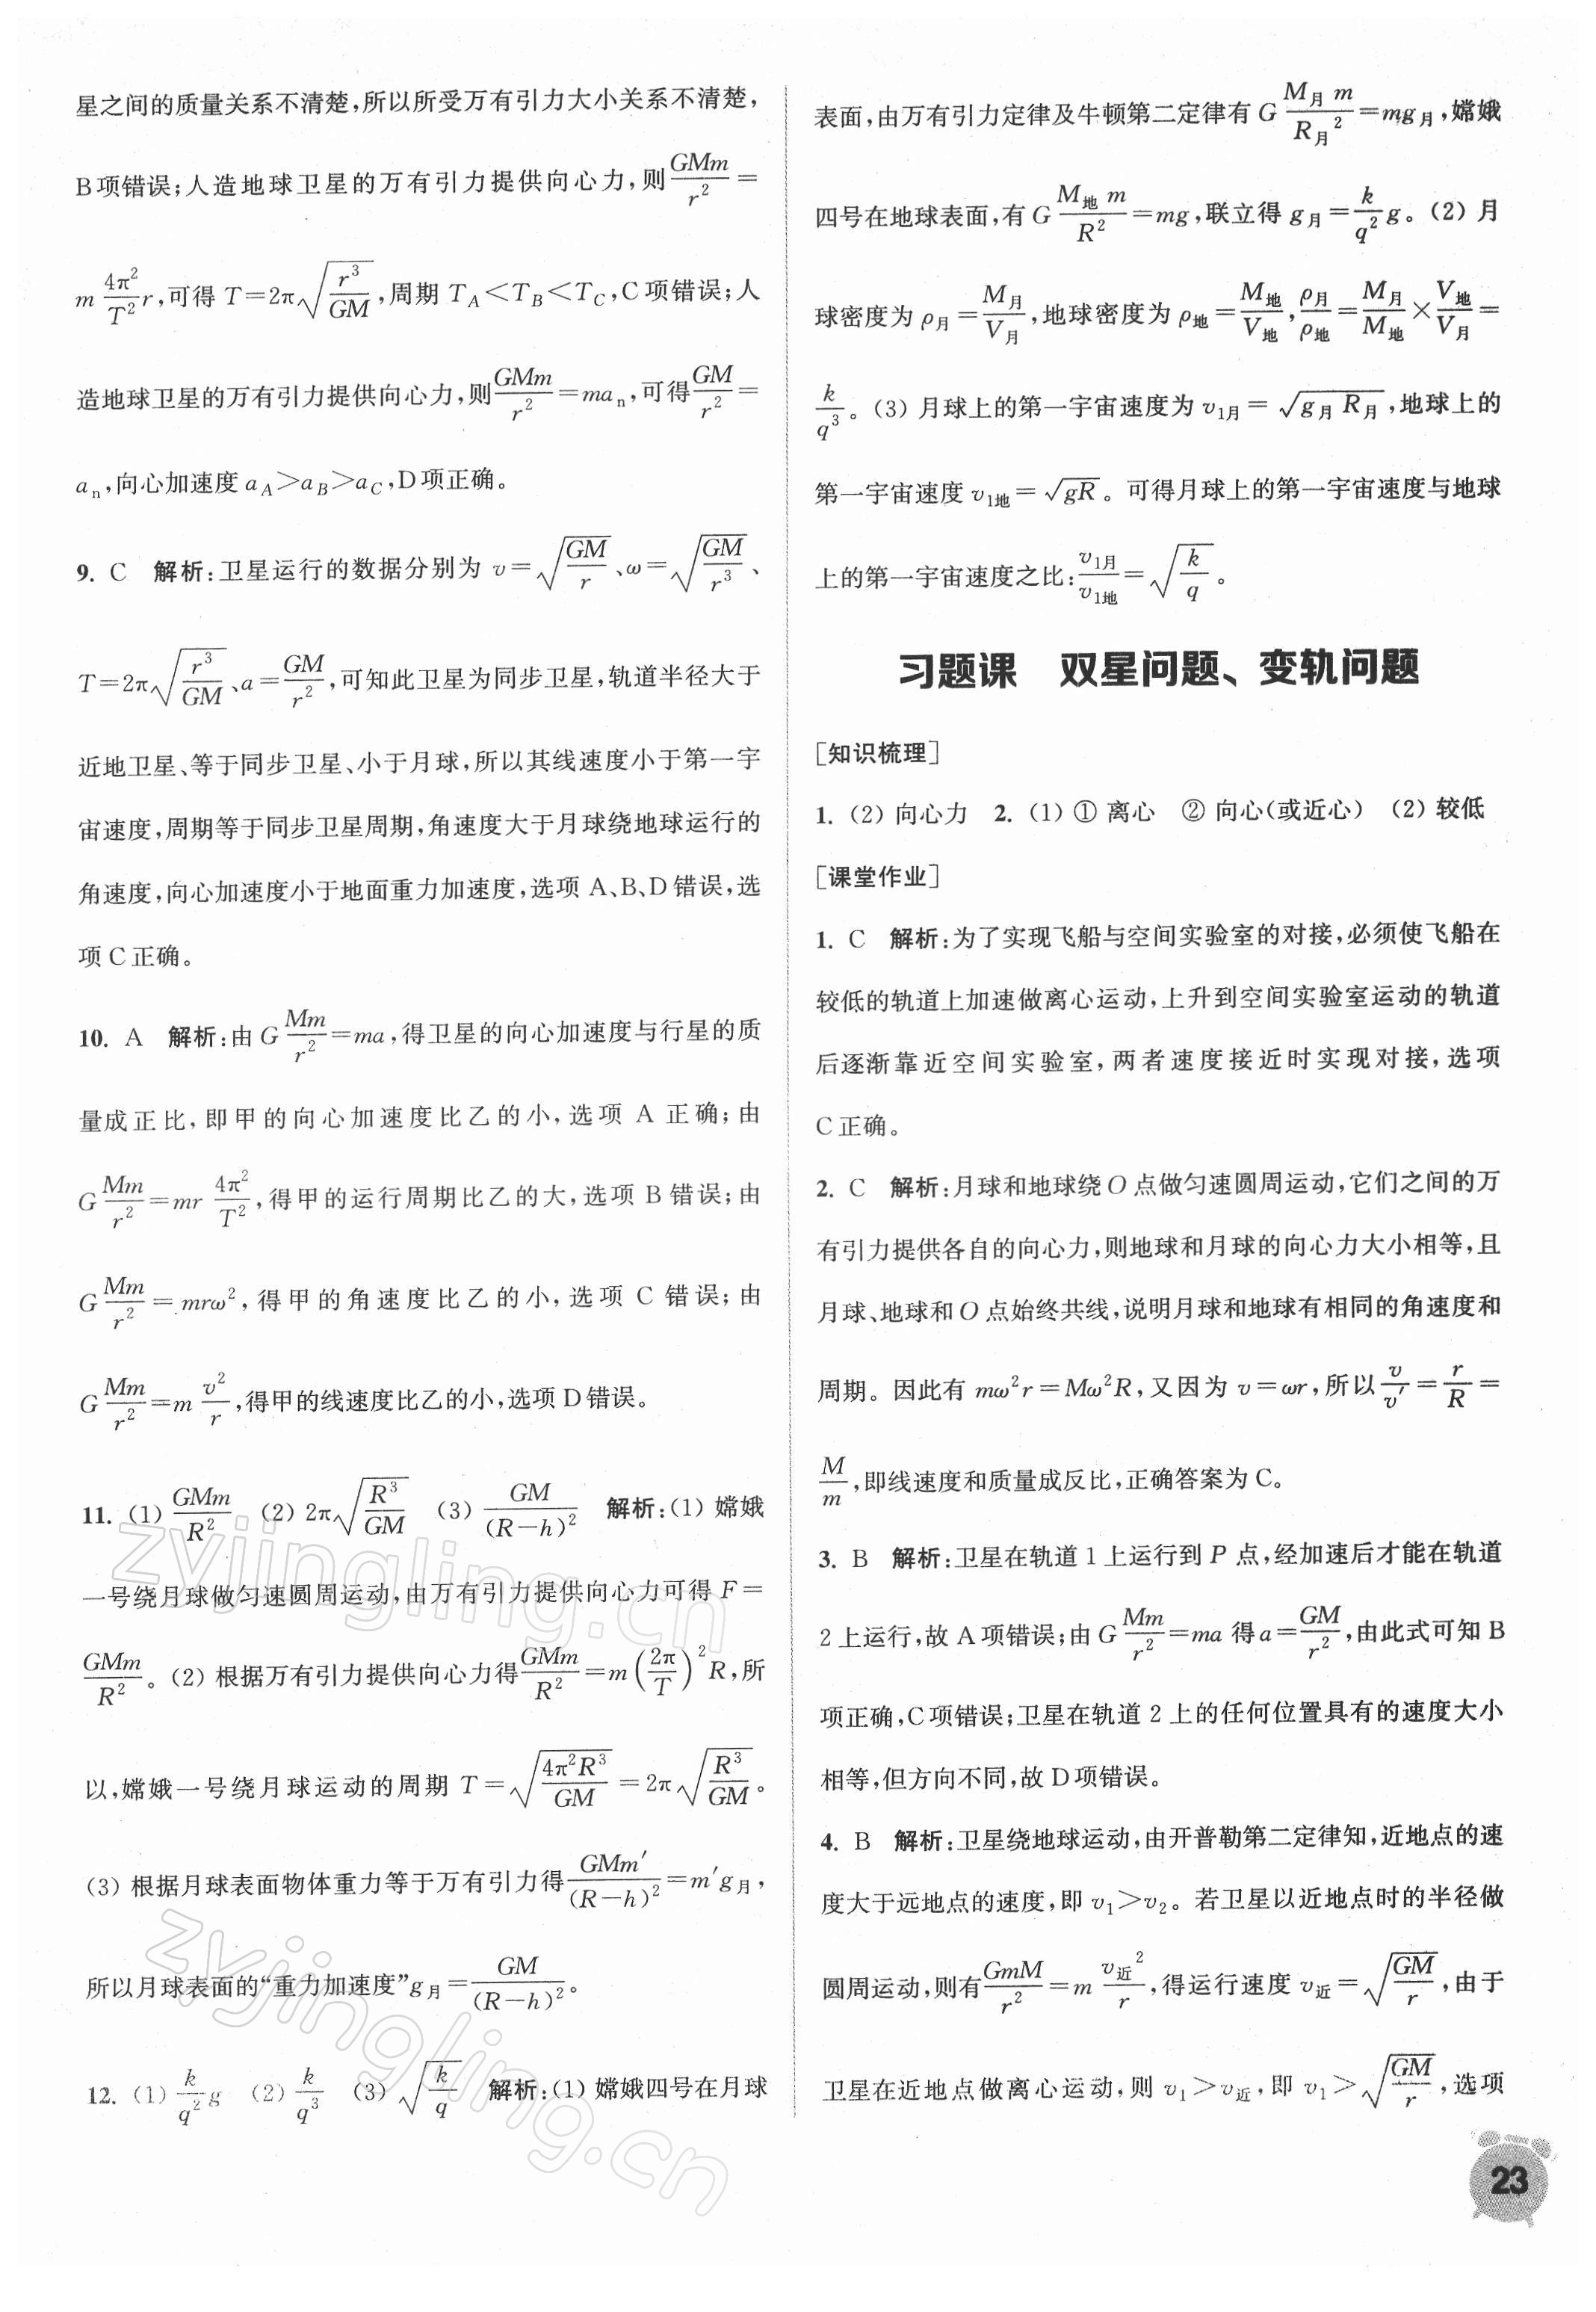 星之间的质量关系不清楚,所以所受万有引力大小关系不清楚,
B项错误;人造地球卫星的万有引力提供向心力,则$\frac{GMm}{r^2}$=
m$\frac{4π^2}{T^2}$r,可得 T=2π$\sqrt{\frac{r^3}{GM}}$,周期 $T_A$<$T_B$<$T_C$,C项错误;人
造地球卫星的万有引力提供向心力,则$\frac{GMm}{r^2}$=$ma_n$,可得$\frac{GM}{r^2}$=
$a_n$,向心加速度 $a_A$>$a_B$>$a_C$,D项正确。
9. C 解析:卫星运行的数据分别为 v=$\sqrt{\frac{GM}{r}}$、ω=$\sqrt{\frac{GM}{r^3}}$、
T=2π$\sqrt{\frac{r^3}{GM}}$、a=$\frac{GM}{r^2}$,可知此卫星为同步卫星,轨道半径大于
近地卫星、等于同步卫星、小于月球,所以其线速度小于第一宇
宙速度,周期等于同步卫星周期,角速度大于月球绕地球运行的
角速度,向心加速度小于地面重力加速度,选项 A、B、D错误,选
项C正确。
10. A 解析:由G$\frac{Mm}{r^2}$=ma,得卫星的向心加速度与行星的质
量成正比,即甲的向心加速度比乙的小,选项 A 正确;由
G$\frac{Mm}{r^2}$=mr$\frac{4π^2}{T^2}$,得甲的运行周期比乙的大,选项 B 错误;由
G$\frac{Mm}{r^2}$=mrω$^2$,得甲的角速度比乙的小,选项 C 错误;由
G$\frac{Mm}{r^2}$=m$\frac{v^2}{r}$,得甲的线速度比乙的小,选项D错误。
11. (1) $\frac{GMm}{R^2}$ (2) 2π$\sqrt{\frac{R^3}{GM}}$ (3) $\frac{GM}{(R-h)^2}$ 解析:(1) 嫦娥
一号绕月球做匀速圆周运动,由万有引力提供向心力可得 F=
$\frac{GMm}{R^2}$。(2) 根据万有引力提供向心力得$\frac{GMm}{R^2}$=m$\left(\frac{2π}{T}\right)^2$R,所
以,嫦娥一号绕月球运动的周期 T=$\sqrt{\frac{4π^2R^3}{GM}}$=2π$\sqrt{\frac{R^3}{GM}}$。
(3) 根据月球表面物体重力等于万有引力得$\frac{GMm'}{(R-h)^2}$=m'$g_月$,
所以月球表面的“重力加速度”$g_月$=$\frac{GM}{(R-h)^2}$。
12. (1) $\frac{k}{q^2}$g (2) $\frac{k}{q^3}$ (3) $\sqrt{\frac{k}{q}}$ 解析:(1) 嫦娥四号在月球
表面,由万有引力定律及牛顿第二定律有 G$\frac{M_月m}{R_月^2}$=$mg_月$,嫦娥
四号在地球表面,有 G$\frac{M_地m}{R^2}$=mg,联立得 $g_月$=$\frac{k}{q^2}$g。(2) 月
球密度为 $ρ_月$=$\frac{M_月}{V_月}$,地球密度为 $ρ_地$=$\frac{M_地}{V_地}$,$\frac{ρ_月}{ρ_地}$=$\frac{M_月}{M_地}$×$\frac{V_地}{V_月}$=
$\frac{k}{q^3}$。(3) 月球上的第一宇宙速度为 $v_{1月}$=$\sqrt{g_月R_月}$,地球上的
第一宇宙速度 $v_{1地}$=$\sqrt{gR}$。可得月球上的第一宇宙速度与地球
上的第一宇宙速度之比:$\frac{v_{1月}}{v_{1地}}$=$\sqrt{\frac{k}{q}}$。
习题课 双星问题、变轨问题
[知识梳理]
1. (2) 向心力 2. (1) ① 离心 ② 向心(或近心) (2) 较低
[课堂作业]
1. C 解析:为了实现飞船与空间实验室的对接,必须使飞船在
较低的轨道上加速做离心运动,上升到空间实验室运动的轨道
后逐渐靠近空间实验室,两者速度接近时实现对接,选项
C正确。
2. C 解析:月球和地球绕O点做匀速圆周运动,它们之间的万
有引力提供各自的向心力,则地球和月球的向心力大小相等,且
月球、地球和O点始终共线,说明月球和地球有相同的角速度和
周期。因此有 mω$^2$r=Mω$^2$R,又因为 v=ωr,所以$\frac{v}{v'}$=$\frac{r}{R}$=
$\frac{M}{m}$,即线速度和质量成反比,正确答案为C。
3. B 解析:卫星在轨道1上运行到 P 点,经加速后才能在轨道
2上运行,故A项错误;由G$\frac{Mm}{r^2}$=ma 得a=$\frac{GM}{r^2}$,由此式可知B
项正确,C项错误;卫星在轨道2上的任何位置具有的速度大小
相等,但方向不同,故D项错误。
4. B 解析:卫星绕地球运动,由开普勒第二定律知,近地点的速
度大于远地点的速度,即 $v_1$>$v_2$。若卫星以近地点时的半径做
圆周运动,则有$\frac{GmM}{r^2}$=m$\frac{v_近^2}{r}$,得运行速度 $v_近$=$\sqrt{\frac{GM}{r}}$,由于
卫星在近地点做离心运动,则 $v_1$>$v_近$,即 $v_1$>$\sqrt{\frac{GM}{r}}$,选项
23
zyjingling.cn
zyjingling.cn